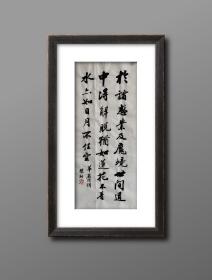 於諸惑業及魔境世間道
中得解脫猶如蓮花不著
水亦如日月不住空